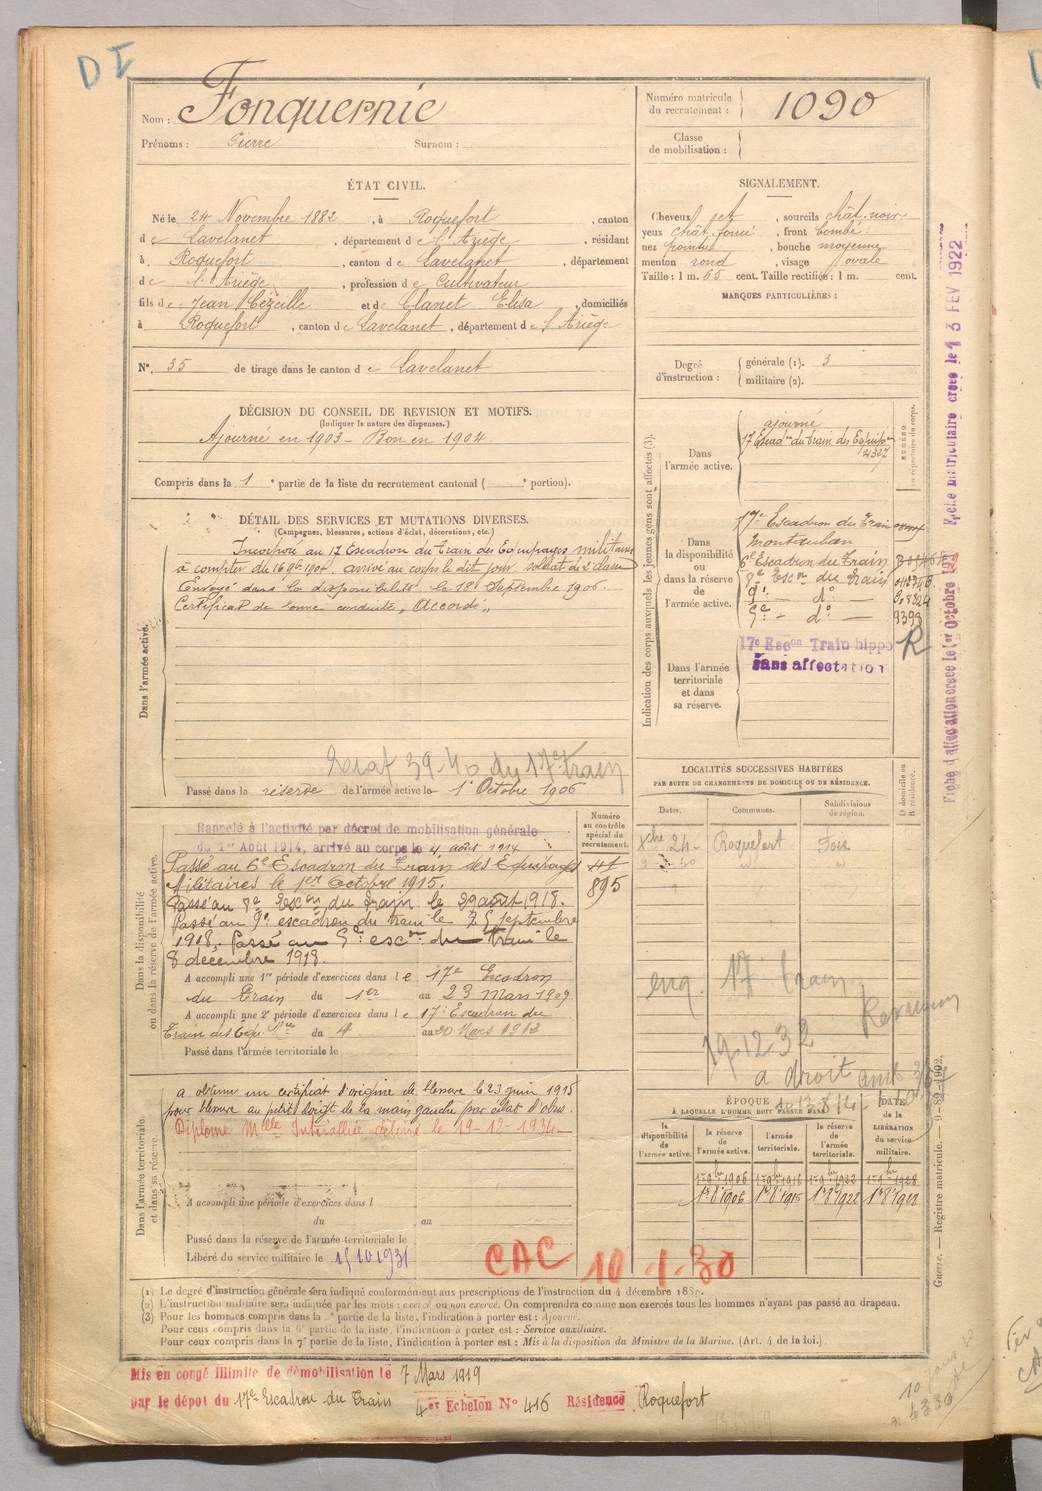 D I
Nom : Fonquernie
Prénoms : Pierre Surnom :
Numéro matricule du recrutement : 1090
Classe de mobilisation :
ÉTAT CIVIL.
Né le 24 Novembre 1882, à Roquefort, canton
de Lavelanet, département de l'Ariège, résidant
à Roquefort, canton de Lavelanet, département
de l'Ariège, profession de Cultivateur
fils de Jean Cézeille et de Clanet Elisa, domiciliés
à Roquefort, canton de Lavelanet, département de l'Ariège
N° 35 de tirage dans le canton de Lavelanet
SIGNALEMENT.
Cheveux jet, sourcils chât. noir
yeux chât. foncé, front bombé
nez pointu, bouche moyenne
menton rond, visage ovale
Taille : 1 m. 65 cent. Taille rectifiée : 1 m. cent.
MARQUES PARTICULIÈRES :
Degré d'instruction : générale (1). 3
militaire (2).
DÉCISION DU CONSEIL DE REVISION ET MOTIFS.
(Indiquer la nature des dispenses.)
Ajourné en 1903 - Bon en 1904
Compris dans la 1e partie de la liste du recrutement cantonal ( e portion).
DÉTAIL DES SERVICES ET MUTATIONS DIVERSES.
(Campagnes, blessures, actions d'éclat, décorations, etc.)
Dans l'armée active.
Incorporé au 17 Escadron du Train des Equipages militaires
à compter du 16 9b. 1904. arrivé au corps le dit jour soldat de 2e classe
Envoyé dans la disponibilité le 18 Septembre 1906.
Certificat de bonne conduite „Accordé„
39-40 du 17e train
Passé dans la réserve de l'armée active le 1er Octobre 1906
Indication des corps auxquels les jeunes gens sont affectés (3).
NUMÉRO au répertoire du corps.
Dans l'armée active.
ajourné
17 Escad. du Train des Equip.
4327
Dans la disponibilité ou dans la réserve de l'armée active.
17e Escadron du Train
Montauban
6e Escadron du Train
8e Escon du Train
9e - do -
5e - do - 9393
R
Dans l'armée territoriale et dans sa réserve.
17e Escon Train hippo
Sans affectation
Fiche d'affectation créée le 1er Octobre
Fiche matriculaire créée le 13 FEV 1922
LOCALITÉS SUCCESSIVES HABITÉES
PAR SUITE DE CHANGEMENTS DE DOMICILE OU DE RÉSIDENCE.
Dates. Communes. Subdivisions de région. D domicile ou R résidence.
Xbre 24 Roquefort Foix
enq. 17 train
19-12-32
a droit
Dans la disponibilité ou dans la réserve de l'armée active.
Numéro au contrôle spécial du recrutement.
895
Rappelé à l'activité par décret de mobilisation générale
du 1er Août 1914, arrivé au corps le 4 août 1914
Passé au 6e Escadron du Train des Equipages
Militaires le 1er Octobre 1915.
Passé au 8e Escon du Train le 29 août 1918.
Passé au 9e escadron du train le 25 Septembre
1918. Passé au 5e escon du train le
8 décembre 1918.
A accompli une 1re période d'exercices dans le 17e Escadron
du Train du 1er au 23 Mars 1909
A accompli une 2e période d'exercices dans le 17e Escadron du
Train des Equi. du 4 au 20 Mars 1912
Passé dans l'armée territoriale le
Dans l'armée territoriale et dans sa réserve.
a obtenu un certificat d'origine de blessure le 23 juin 1915
pour blessure au petit doigt de la main gauche par éclat d'obus.
Diplome Mlle Interalliée délivré le 19-12-1934
A accompli une période d'exercices dans l
du au
Passé dans la réserve de l'armée territoriale le
Libéré du service militaire le 15 10 1931
CAC 10-1-30
ÉPOQUE
À LAQUELLE L'HOMME DOIT PASSER DANS
la disponibilité de l'armée active. la réserve de l'armée active. l'armée territoriale. la réserve de l'armée territoriale. DATE de la LIBÉRATION du service militaire.
1er 9bre 1906 1er 9bre 1916 1er 9bre 1922 1er 9bre 1928
1er 8bre 1906 1er 8bre 1916 1er 8bre 1922 1er 8bre 1928
Guerre. — Registre matricule. — 9-82-1902.
(1) Le degré d'instruction générale sera indiqué conformément aux prescriptions de l'instruction du 4 décembre 1889.
(2) L'instruction militaire sera indiquée par les mots : exercé ou non exercé. On comprendra comme non exercés tous les hommes n'ayant pas passé au drapeau.
(3) Pour les hommes compris dans la 2e partie de la liste, l'indication à porter est : Ajourné.
Pour ceux compris dans la 6e partie de la liste, l'indication à porter est : Service auxiliaire.
Pour ceux compris dans la 7e partie de la liste, l'indication à porter est : Mis à la disposition du Ministre de la Marine. (Art. 4 de la loi.)
Mis en congé illimité de démobilisation le 7 Mars 1919
par le dépôt du 17e Escadron du Train 4er Echelon N° 416 Résidence Roquefort